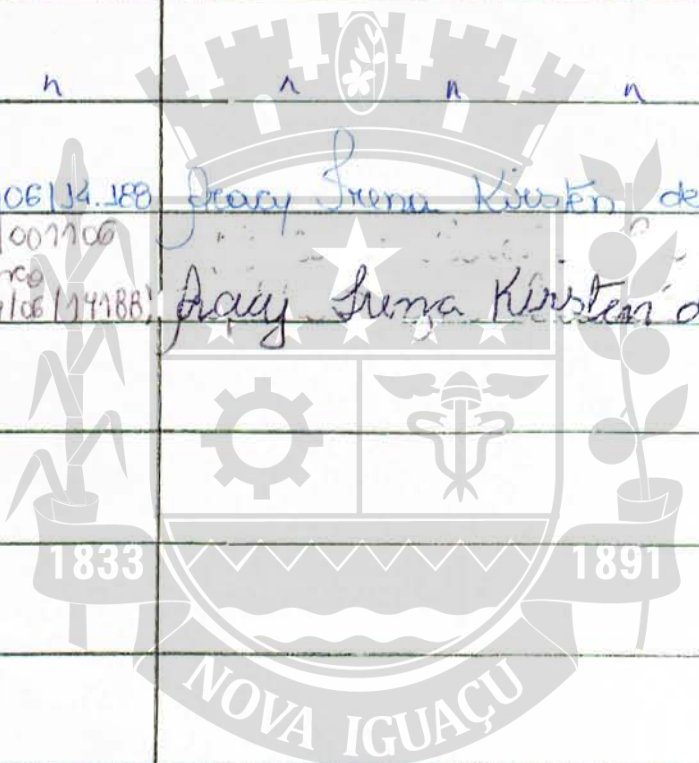 n n n n
06/14.188 Aracy Irena Kirsten de
/001106
/06/14188 Aracy Irena Kirsten d
1833 1891
NOVA IGUAÇU